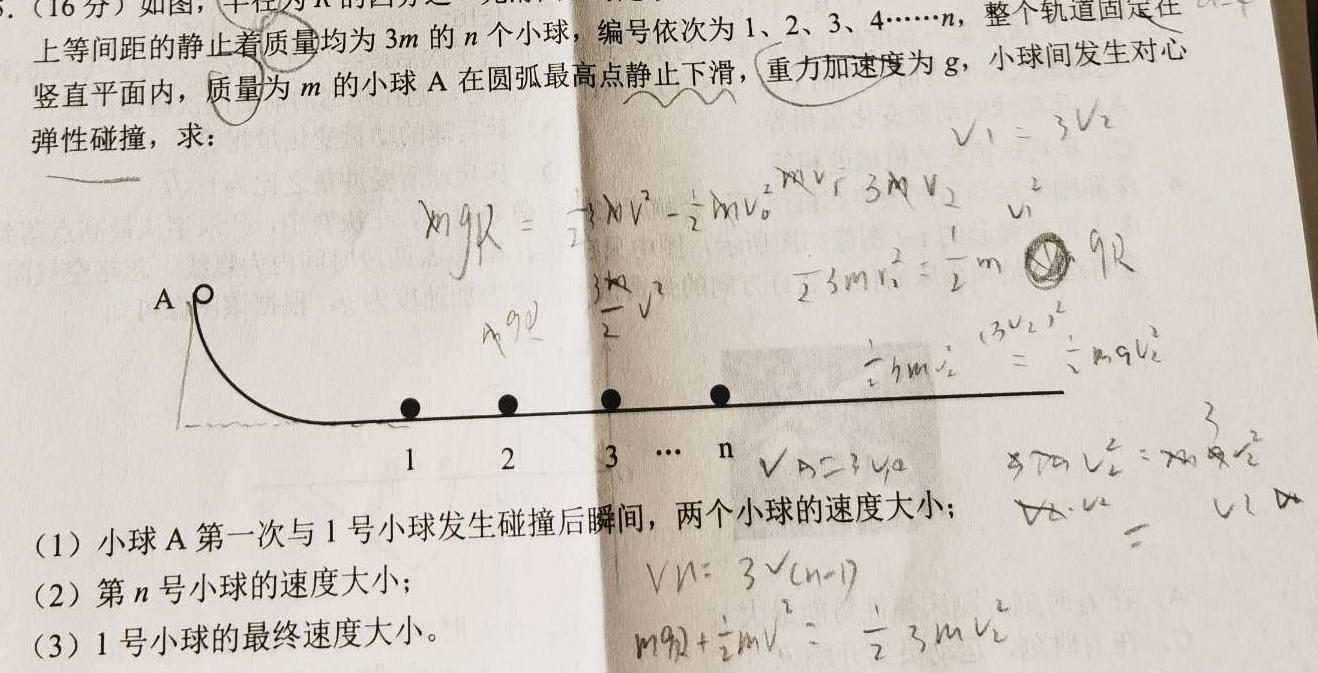 (16分)如图,半径为R的四分之一光滑
上等间距的静止着质量均为 3m 的 n 个小球，编号依次为 1、2、3、4……n，整个轨道固定在
竖直平面内，质量为 m 的小球 A 在圆弧最高点静止下滑，重力加速度为 g，小球间发生对心
弹性碰撞，求：
V1 = 3V2
mgR = 1/2 3mV² - 1/2 mV0²
mV1 = 3mV2
V1²
1/2 3mV2² = 1/2 m 9R
mgR
3m/2 V²
(3V2)²
1/2 3mV2² = 1/2 m9V2²
A
1 2 3 … n
VA=3V2
3
（1）小球 A 第一次与 1 号小球发生碰撞后瞬间，两个小球的速度大小；
（2）第 n 号小球的速度大小；
Vn= 3V(n-1)
（3）1 号小球的最终速度大小。
mgR+1/2mV1² = 1/2 3mV2²